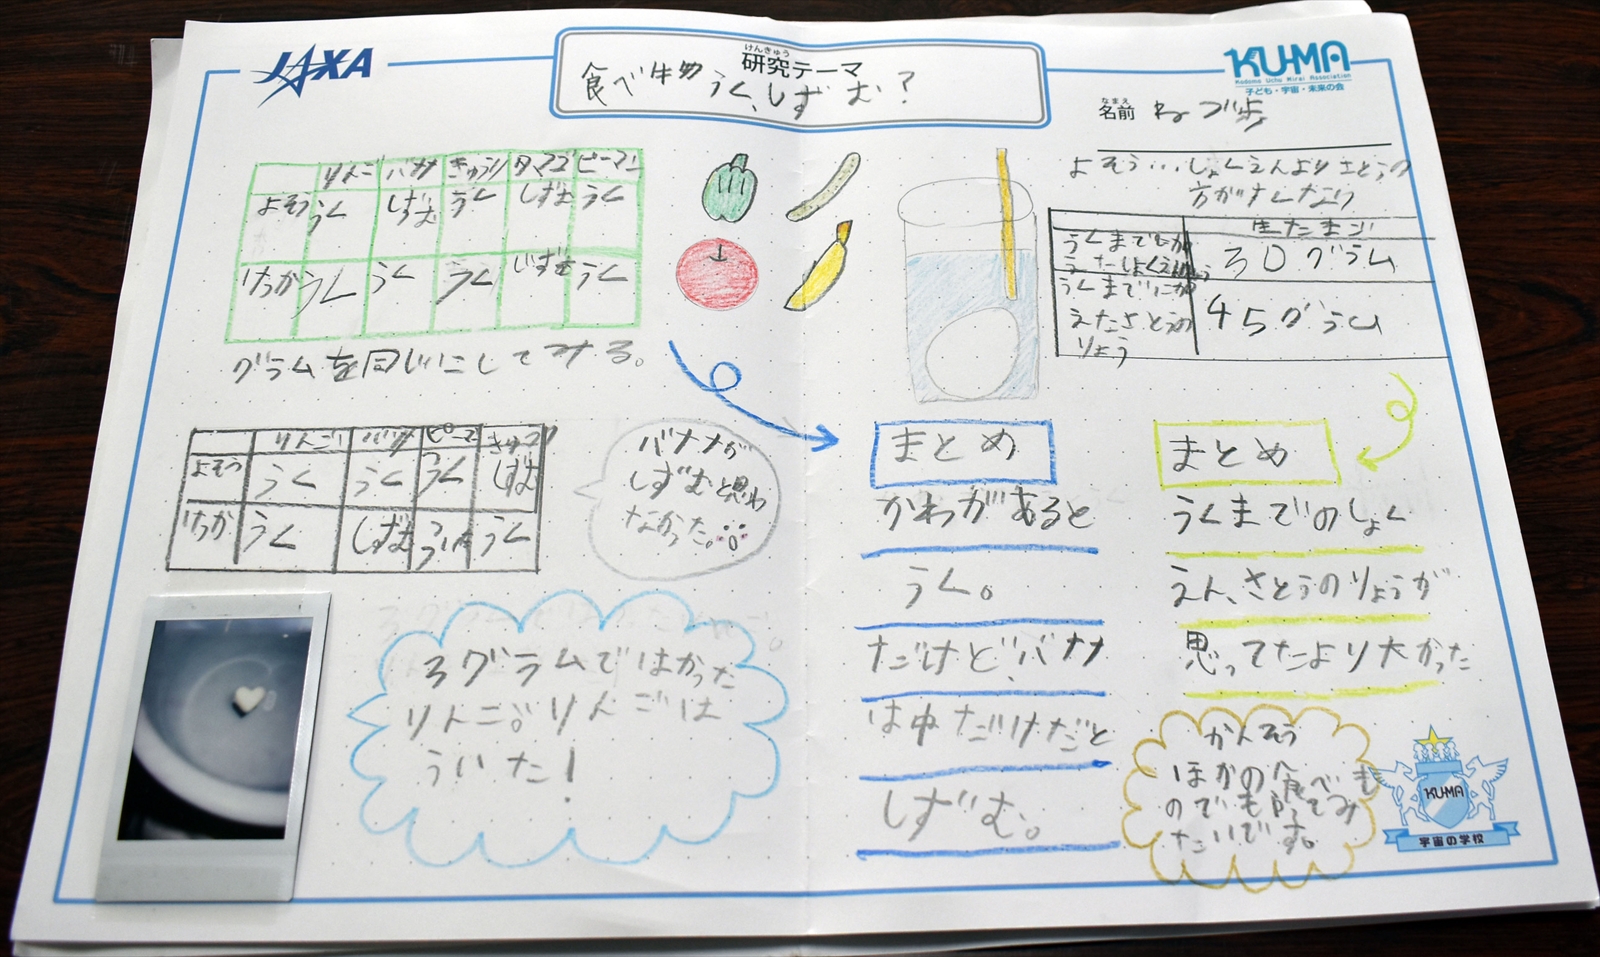 JAXA
けんきゅう
研究テーマ
食べ物 うく、しずむ?
KU-MA
Kodomo Uchu Mirai Association
子ども・宇宙・未来の会
なまえ
名前
りんご バナナ きゅうり タマゴ ピーマン
よそう うく しずむ うく しずむ うく
けっか うく うく うく しずむ うく
グラムを同じにしてみる。
りんご バナナ ピーマン きゅうり
よそう うく うく うく しずむ
けっか うく しずむ ういた うく
バナナが
しずむと思わ
なかった。
3グラムではかった
りんご。りんごは
ういた!
よそう…しょくえんよりさとうの
方がすくない
生たまご
うくまでにか
うたしょくえん
30グラム
うくまでにか
えたさとうの
りょう
45グラム
まとめ
かわがあると
うく。
だけど、バナナ
は中だけだと
しずむ。
まとめ
うくまでのしょく
えん、さとうのりょうが
思ってたより大かった
かんそう
ほかの食べも
のでも
たいです。
KU-MA
宇宙の学校